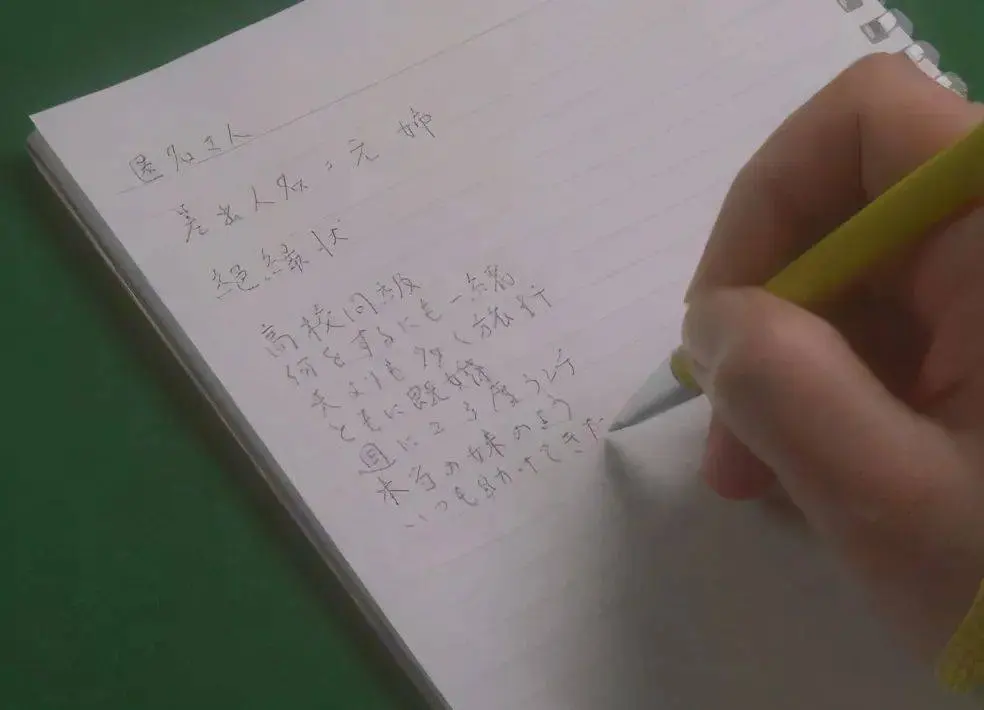 匿名主人
差出人名:元 姉
絶縁状
高校同級
何をするにも一緒
夫よりも多く旅行
ともに既婚
に2、3度うち
本当の妹のよう
いつも助けてきた